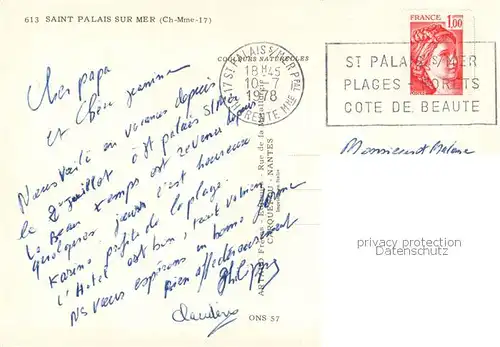 613 SAINT PALAIS SUR MER (Ch-Mme-17)
COULEURS NATURELLES
17 ST PALAIS S/MER PPAL
18H45
10-7
1978
CHARENTE MME
FRANCE 1,00
ST PALAIS S/MER
PLAGES - FORETS
COTE DE BEAUTE
Cher papa
et Chère Jeannine
Nous voilà en vacances depuis
le 2 juillet à St palais S/Mer
Le Beau temps est revenu depuis
quelques jours c'est heureuse
Karine profite de la plage.
L'Hotel est bien, tout va bien
Ns vous espérons en bonne forme
Bien affectueusement
Philippe
Claudine
Monsieur et Madame
ARTAUD Frères - Editeurs - Rue de la Métallurgie
CARQUEFOU - NANTES
ONS 57
privacy protection
Datenschutz